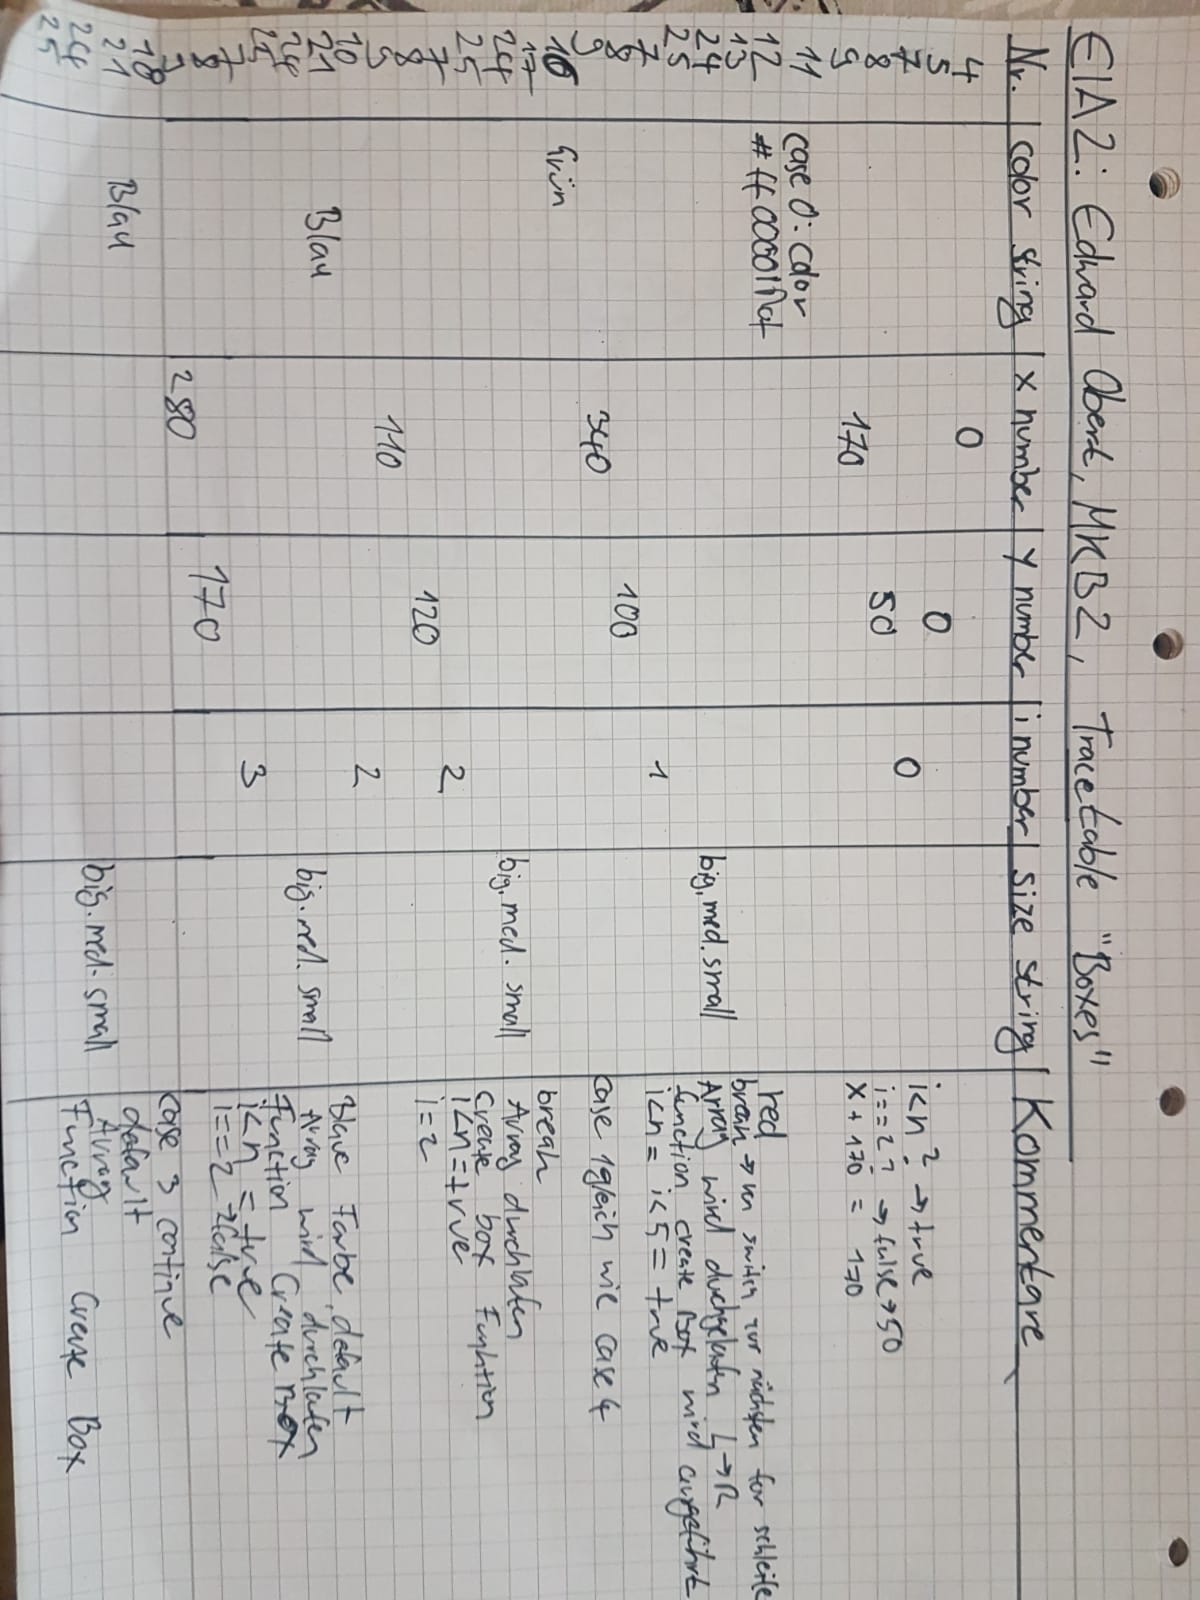 EIA2: Edward Obert, MKB2, Tracetable "Boxes"
Nr. color string x number y number i number size string Kommentare
4 0
5 0
7 0 i<n? → true
8 50 i==2? → false → 50
9 170 x + 170 = 170
11 case 0: color
12 #ff0000 red
13 break → von switch zur nächsten for schleife
24 big, med. small Array wird durchgelafen L → R
25 function create Box wird ausgeführt
7 1 i<n = i<5 = true
8 100
9 340 case 1 gleich wie case 4
16 Grün
17 break
24 big. med. small Array durchlafen
25 Create box Funktion
7 2 i<n = true
8 120 i=2
9 110
10 2
21 Blau Blaue Farbe, default
24 big. med. small Array wird durchlafen
25 Function Create Box
7 3 i<n = true
8 170 i==2 → false
9 280
18 case 3 continue
21 Blau default
24 big. med. small Array
25 Function Create Box